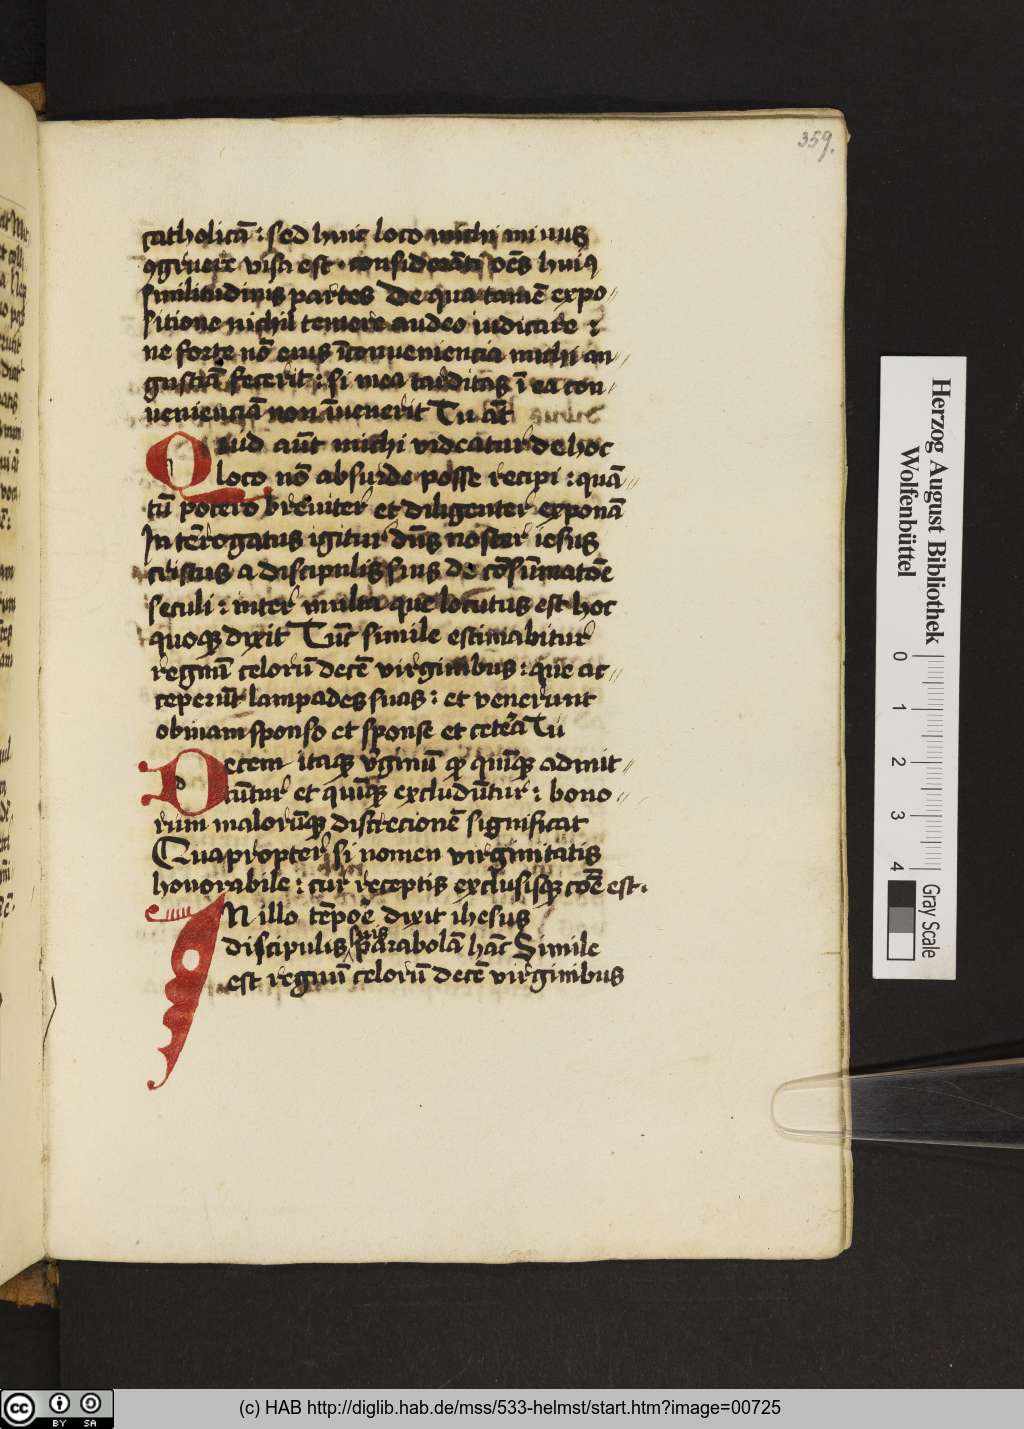 359.
catholicā : sed huic loco michi minus
ꝯgruere visa est · consideratis oēs huiꝰ
similitudinis partes De qua tamē expo〃
sitione nichil temere audeo iudicare :
ne forte nō eius īconueniencia michi an〃
gustiā fecerit : si mea tarditas ī ea con〃
venienciā non īuenerit Tu aūt
Quid aūt michi videatur de hoc
loco nō absurde posse recipi : quā〃
tū potero breuiter et diligenter exponā
Interrogatus igitur dn̄s noster iesus
cristus a discipulis suis de cōsūmatōe
seculi : inter multa que locutus est hoc
quoqꝫ dixit Tūc simile estimabitur
regnū celorū decē virginibus : que ac〃
ceperūt lampades suas : et venerunt
obuiam sponso et sponse et cetera Tu
Decem itaqꝫ virginū ꝙ quīqꝫ admit〃
tūntur et quīqꝫ excludūtur : bono〃
rum malorūqꝫ discrecionē significat
Quapropter si nomen virginitatis
honorabile : cur receptis exclusisqꝫ cōe est.
IN illo tēpore dixit ihesus
discipulis suis parabolā hāc Simile
est regnū celorū decē virginibus
Herzog August Bibliothek
Wolfenbüttel
0 1 2 3 4
Gray Scale
cc BY SA
(c) HAB http://diglib.hab.de/mss/533-helmst/start.htm?image=00725